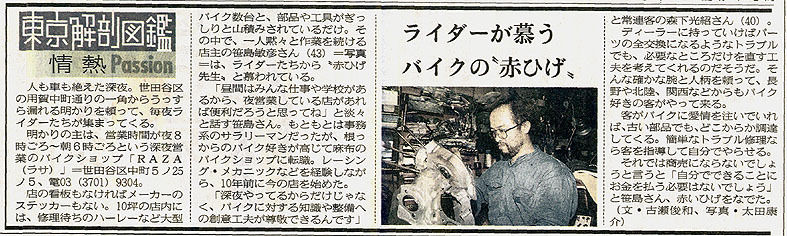 東京解剖図鑑
情熱 Passion
人も車も絶えた深夜。世田谷区
の用賀中町通りの一角からうっす
ら漏れる明かりを頼って、毎夜ラ
イダーたちが集まってくる。
明かりの主は、営業時間が夜8
時ごろ〜朝6時ごろという深夜営
業のバイクショップ「RAZA
(ラサ)」=世田谷区中町5ノ25
ノ5、電03(3701)9304。
店の看板もなければメーカーの
ステッカーもない。10坪の店内に
は、修理待ちのハーレーなど大型
バイク数台と、部品や工具がぎっ
しりと山積みされているだけ。そ
の中で、一人黙々と作業を続ける
店主の笹島敏彦さん(43)=写真
=は、ライダーたちから〝赤ひげ
先生〟と慕われている。
「昼間はみんな仕事や学校があ
るから、夜営業している店があれ
ば便利だろうと思ってね」と淡々
と話す笹島さん。もともとは事務
系のサラリーマンだったが、根っ
からのバイク好きが高じて麻布の
バイクショップに転職。レーシン
グ・メカニックなどを経験しなが
ら、10年前に今の店を始めた。
「深夜やってるからだけじゃな
く、バイクに対する知識や整備へ
の創意工夫が尊敬できるんです」
ライダーが慕う
バイクの〝赤ひげ〟
と常連客の森下光紹さん(40)。
ディーラーに持っていけばパー
ツの全交換になるようなトラブル
でも、必要なところだけを直す工
夫を考えてくれるのだそうだ。そ
んな確かな腕と人柄を頼って、長
野や北陸、関西などからもバイク
好きの客がやって来る。
客がバイクに愛情を注いでいれ
ば、古い部品でも、どこからか調達
してくる。簡単なトラブル修理な
ら客を指導して自分でやらせる。
それでは商売にならないでしょ
うと言うと「自分でできることに
お金を払う必要はないでしょう」
と笹島さん、赤いひげをなでた。
(文・古瀬俊和、写真・太田康
介)